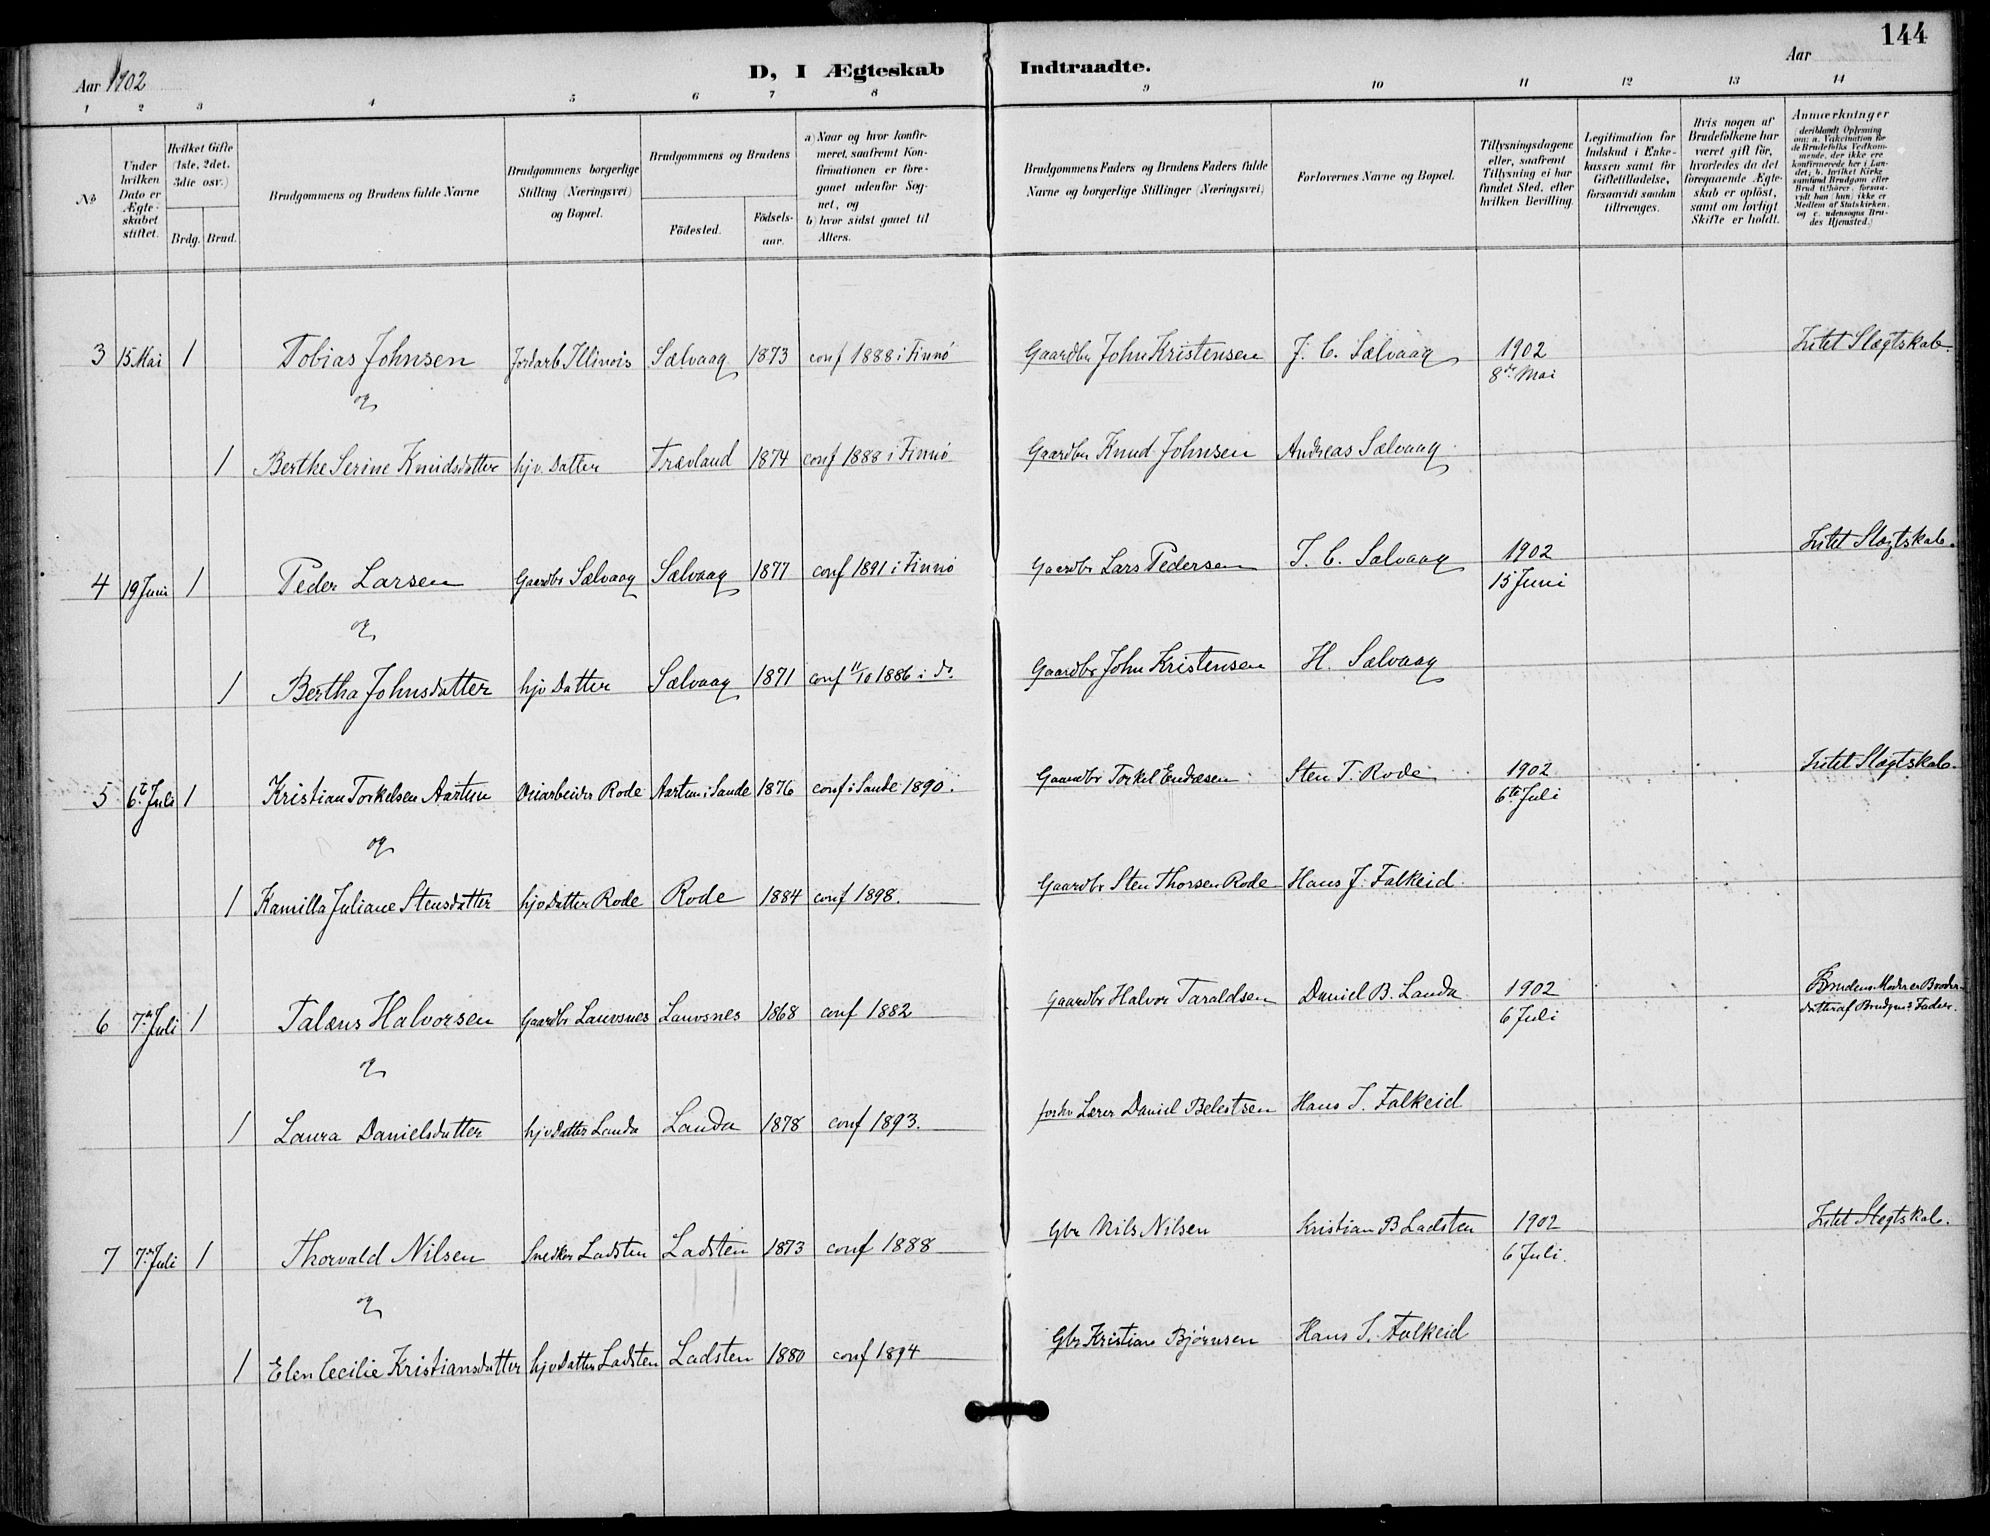 144
Aar 1902
D, I Ægteskab Indtraadte.
Aar
1 2 3 4 5 6 7 8 9 10 11 12 13 14
No
Under hvilken Dato er Ægteskabet stiftet.
Hvilket Gifte (1ste, 2det, 3die osv.)
Brdg. Brud.
Brudgommens og Brudens fulde Navne
Brudgommens borgerlige Stilling (Næringsvei) og Bopæl.
Brudgommens og Brudens
Födested.
Födsels-aar.
a) Naar og hvor konfirmeret, saafremt Konfirmationen er foregaaet udenfor Sognet, og
b) hvor sidst gaaet til Alters.
Brudgommens Faders og Brudens Faders fulde Navne og borgerlige Stillinger (Næringsvei)
Forlovernes Navne og Bopæl.
Tillysningsdagene eller, saafremt Tillysning ei har fundet Sted, efter hvilken Bevilling.
Legitimation for Indskud i Enkekassen samt for Giftetilladelse, forsaavidt saadan tiltrænges.
Hvis nogen af Brudefolkene har været gift för, hvorledes da det foregaaende Ægteskab er oplöst, samt om lovligt Skifte er holdt.
Anmærkninger (deriblandt Oplysning om: a. Vaksination for de Brudefolks Vedkommende, der ikke ere konfirmerede her i Landet; b. hvilket Kirkesamfund Brudgom eller Brud tilhörer, forsaavidt han (hun) ikke er Medlem af Statskirken, og c. udensogns Brudes Hjemsted.)
3 15 Mai 1 Tobias Johnsen Jordarb Illinois Sælvaag 1873 conf 1888 i Finnø Gaardbr John Kristensen J. C. Sælvaag 1902 Intet Slægtskab.
8de Mai
og
1 Berthe Serine Knudsdatter hjv. Datter Trævland 1874 conf 1888 i Finnø Gaardbr Knud Johnsen Andreas Sælvaag
4 19 Juni 1 Peder Larsen Gaardbr Sælvaag Sælvaag 1877 conf 1891 i Finnø Gaardbr Lars Pedersen J. C. Sælvaag 1902 Intet Slægtskab.
15 Juni
og
1 Bertha Johnsdatter hjv Datter Sælvaag 1871 conf 11/10 1886 i do. Gaardbr John Kristensen H. Sælvaag
5 6te Juli 1 Kristian Torkelsen Aartun Veiarbeider Rode Aartun i Sande 1876 conf i Sande 1890. Gaardbr Torkel Endresen Sten T. Rode 1902 Intet Slægtskab.
6te Juli
og
1 Kamilla Juliane Stensdatter hjv Datter Rode Rode 1884 conf 1898. Gaardbr Sten Thorsen Rode Hans J. Falkeid.
6 7de Juli 1 Talæus Halvorsen Gaardbr Lauvsnes Lauvsnes 1868 conf 1882 Gaardbr Halvor Taraldsen Daniel B. Landa 1902 Brudens Moder er Broder-
6 Juli datter af Brudgms Fader.
og
1 Laura Danielsdatter hjv Datter Landa Landa 1878 conf 1893. forhv Lærer Daniel Belestsen Hans J. Falkeid
7 7de Juli 1 Thorvald Nilsen Snedker Ladsten Ladsten 1873 conf 1888 Gbr Nils Nilsen Kristian B Ladsten 1902 Intet Slegtskab.
6 Juli.
og
1 Elen Cecilie Kristiansdatter hjv Datter Ladsten Ladsten 1880 conf 1894 Gbr Kristian Bjørnsen Hans J. Falkeid